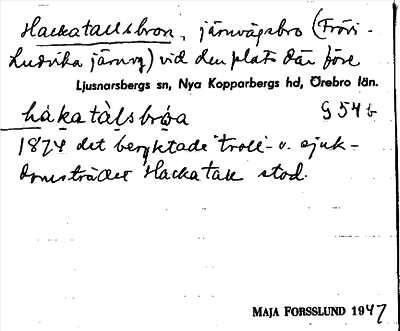 Hackatallsbron, järnvägsbro (Frövi-
Ludvika järnvg) vid den plats där före
Ljusnarsbergs sn, Nya Kopparbergs hd, Örebro län.
håkatàlsbróa G 54 b
1874 det beryktade troll- v. sjuk-
domsträdet Hackatall stod.
MAJA FORSSLUND 1947